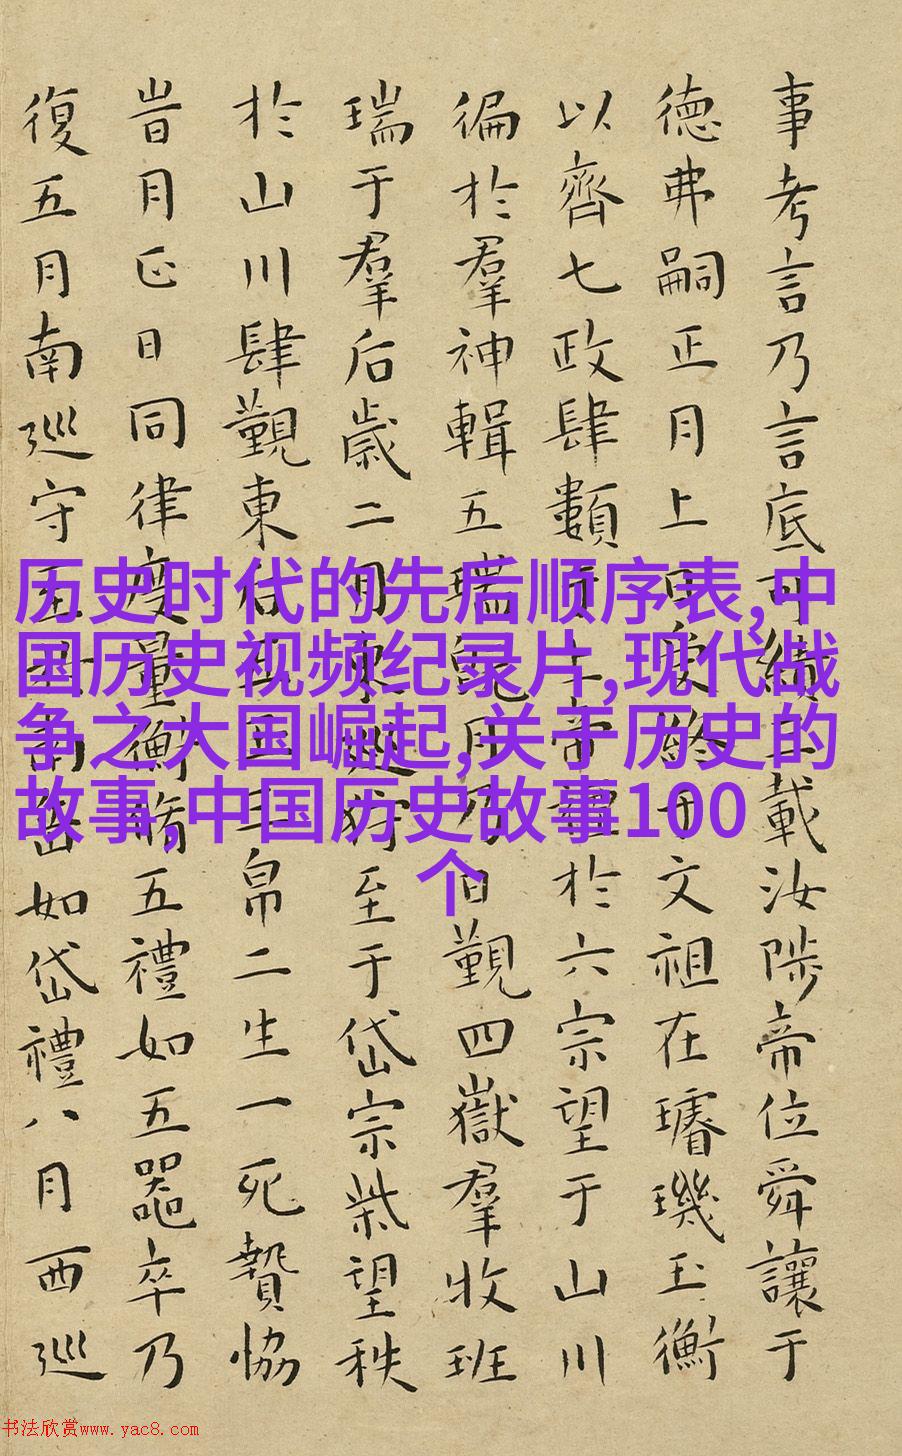 事考言乃言底可績三載汝陟帝位舜讓于
德弗嗣正月上日受終于文祖在璿璣玉衡
以齊七政肆類于上帝禋於六宗望于山川
徧於羣神輯五瑞既月乃日覲四嶽羣收班
瑞于羣后歲二月東巡狩至于岱宗柴望秩
於山川肆覲東后五玉三帛二生一死贄協
旹月正日同律度量衡脩五禮如五器卒乃
復五月南巡守至于南岳如岱禮八月西巡
历史时代的先后顺序表,中
国历史视频纪录片,现代战
争之大国崛起,关于历史的
故事,中国历史故事100
个
书法欣赏www.yac8.com